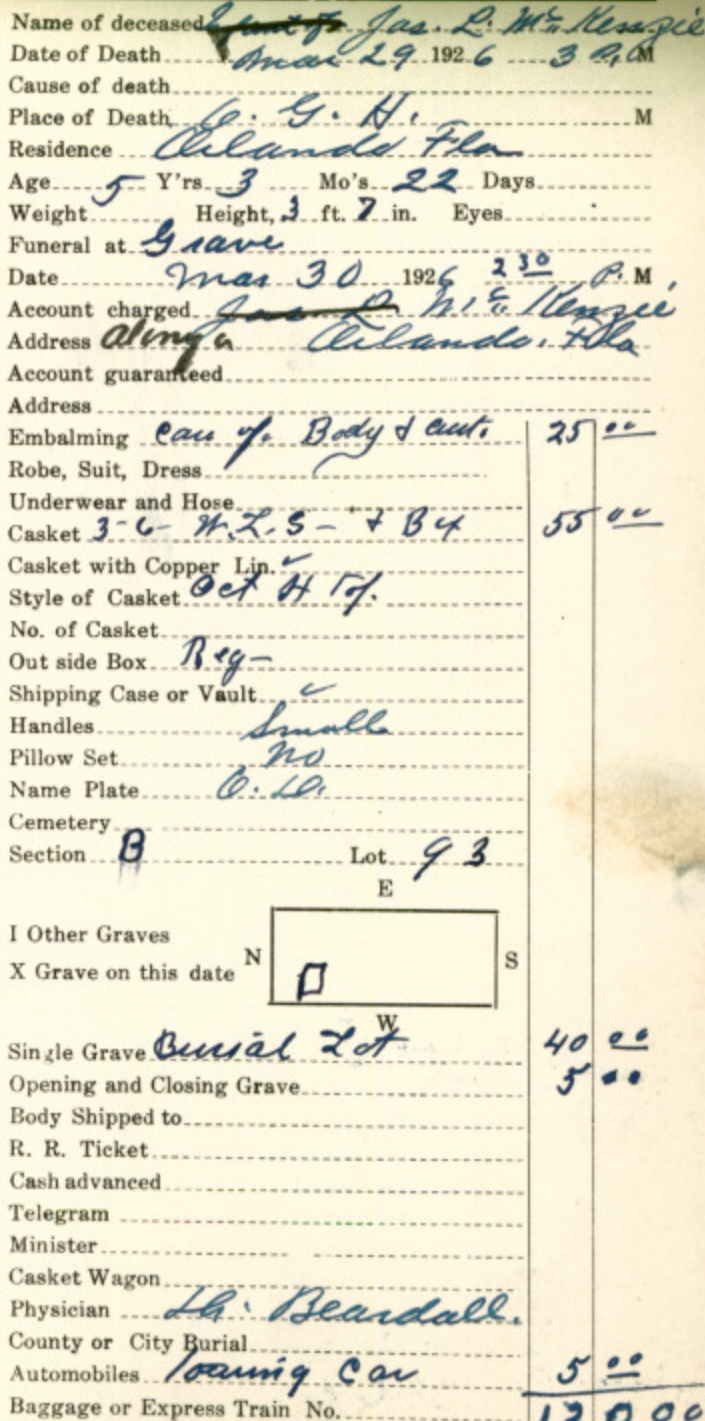 Name of deceased Jas. L. McKenzie
Date of Death Mar 29 1926 3 P. M
Cause of death
Place of Death O. G. H. M
Residence Orlando Fla
Age 5 Y'rs 3 Mo's 22 Days
Weight Height, 3 ft. 7 in. Eyes
Funeral at Grave
Date Mar 30 1926 2 30 P. M.
Account charged Jas. L. McKenzie
Address Orlando. Fla
Account guaranteed
Address
Embalming Care of Body & Amb. 25 00
Robe, Suit, Dress
Underwear and Hose
Casket 3-6- W.L.S - & Bx 55 00
Casket with Copper Lin. ✓
Style of Casket Oct H Tp.
No. of Casket
Out side Box Reg-
Shipping Case or Vault ✓
Handles Small
Pillow Set no
Name Plate O. D.
Cemetery
Section B Lot 93
E
I Other Graves
N S
X Grave on this date
W
Single Grave Burial Lot 40 00
Opening and Closing Grave 5 00
Body Shipped to
R. R. Ticket
Cash advanced
Telegram
Minister
Casket Wagon
Physician Dr. Beardall.
County or City Burial
Automobiles Touring Car 5 00
Baggage or Express Train No. 130 00